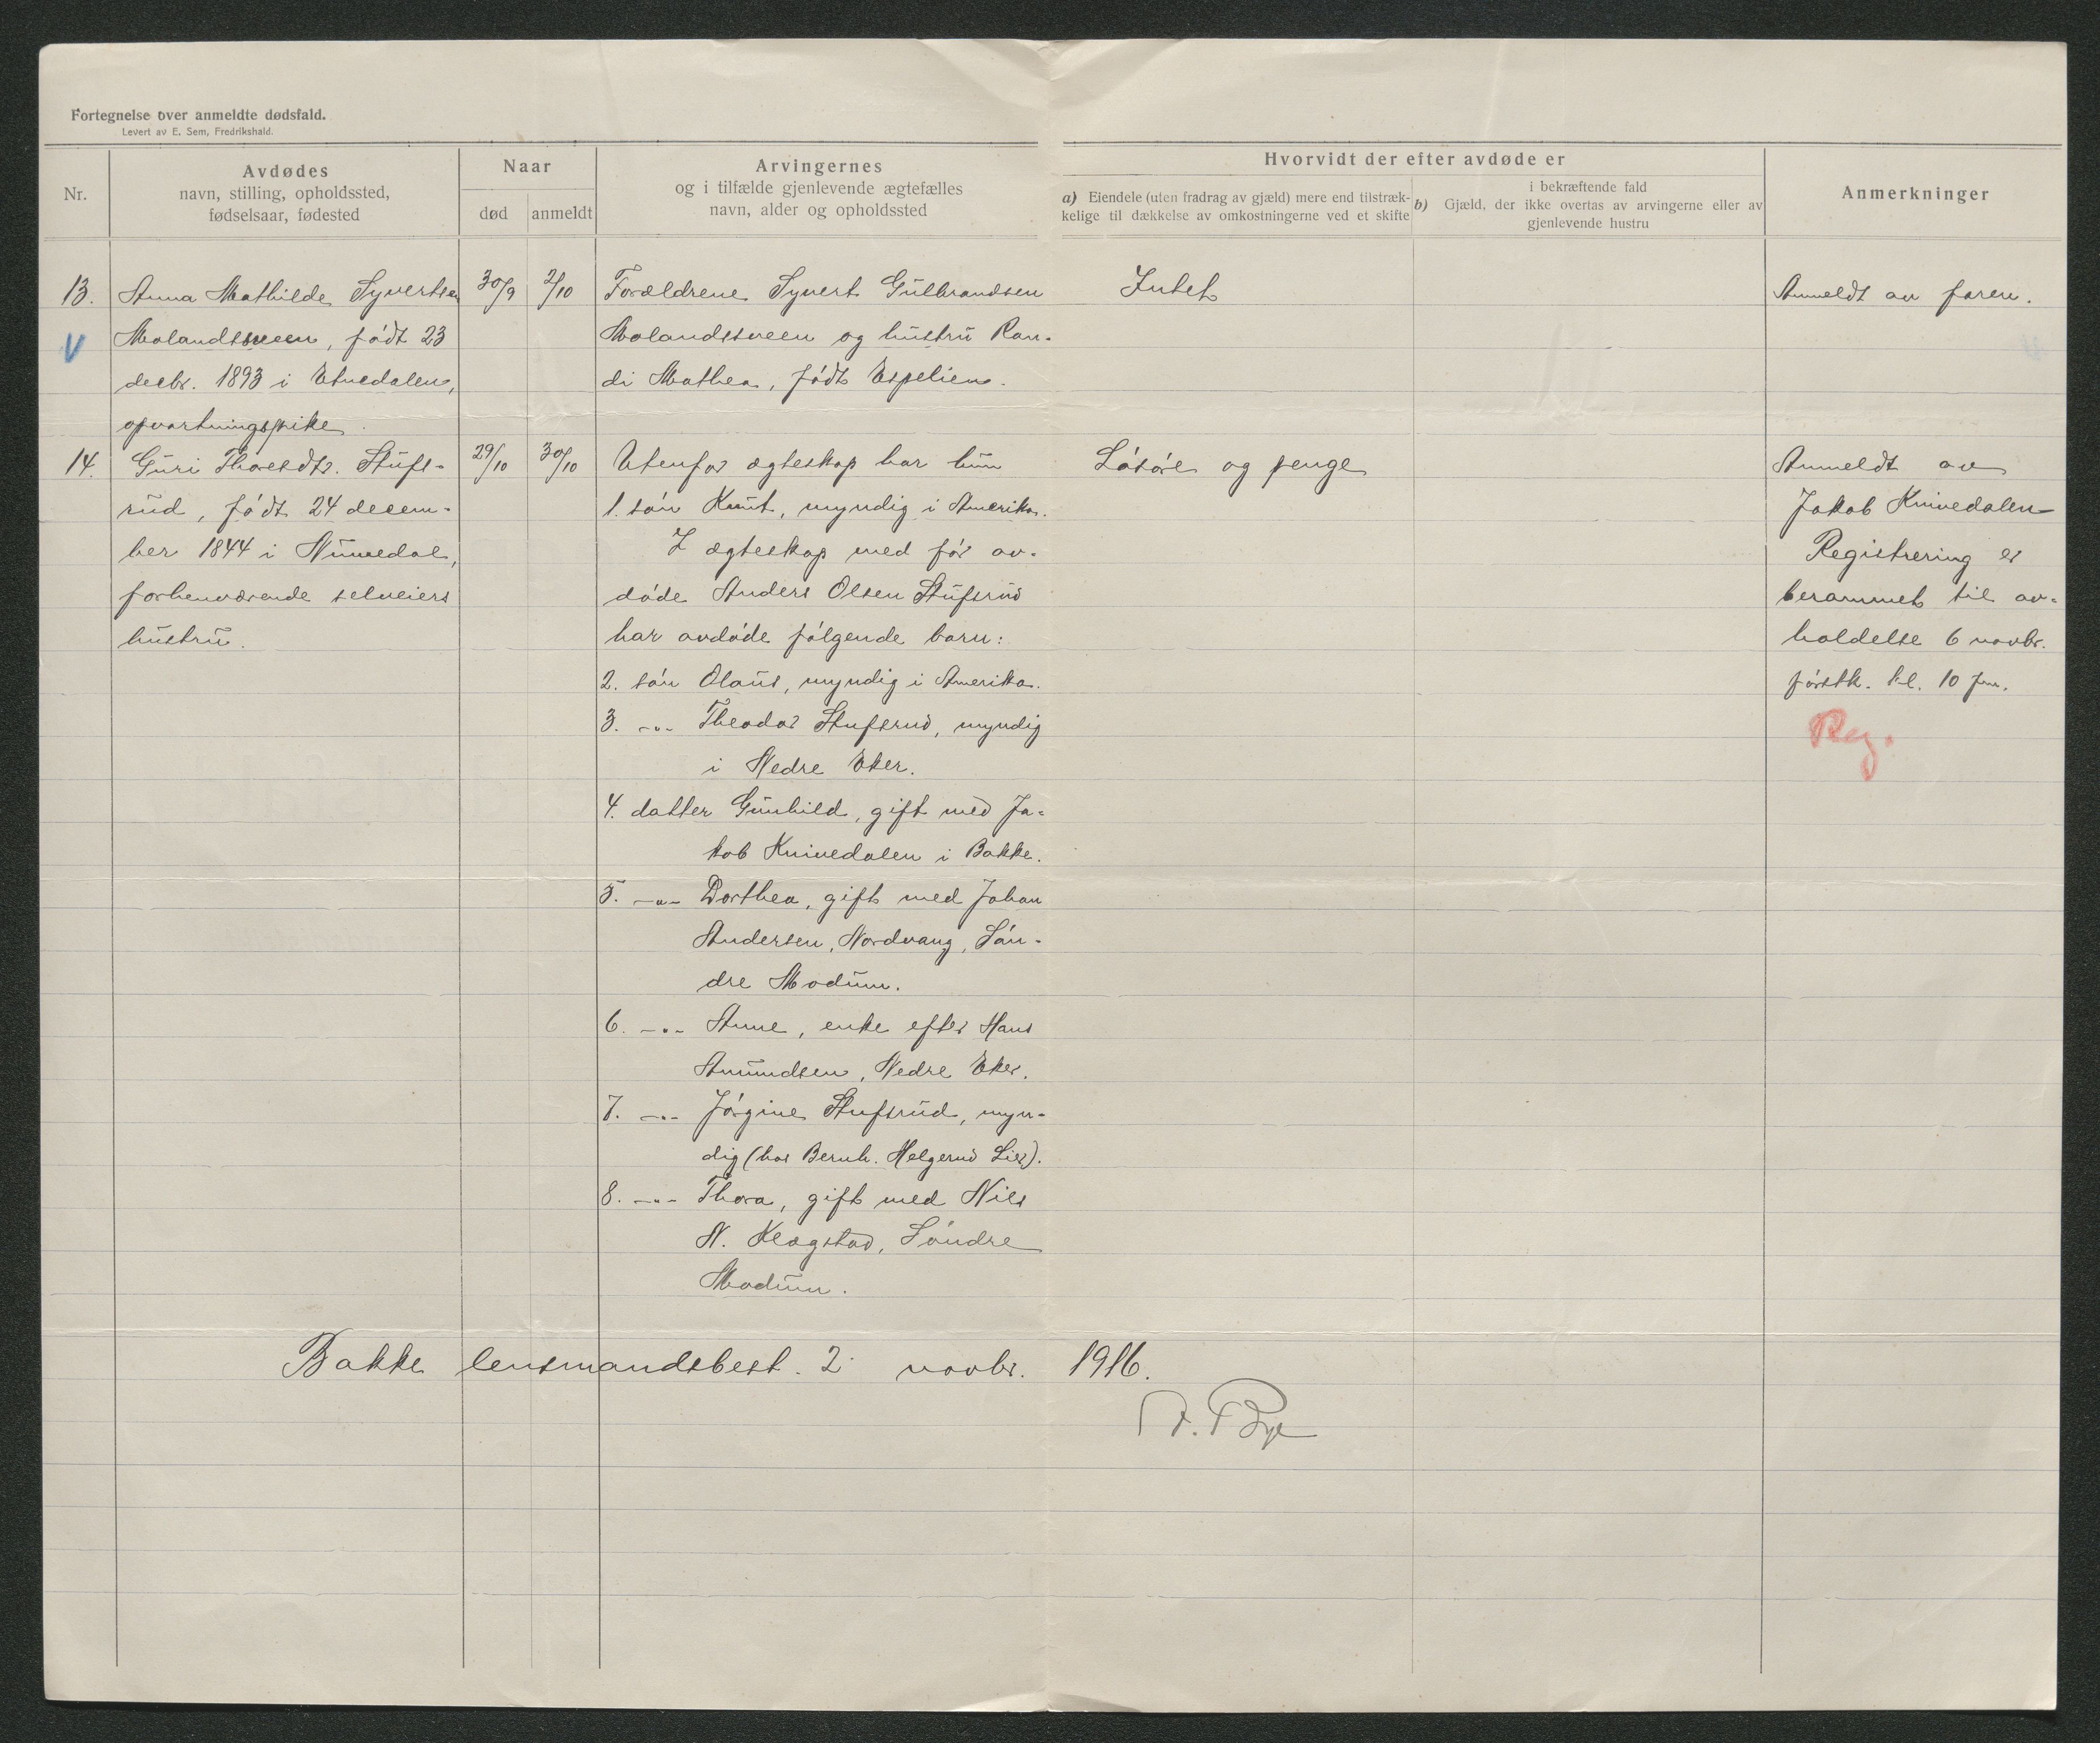 Fortegnelse over anmeldte dødsfald.
Levert av E. Sem, Fredrikshald.
Nr.
Avdødes
navn, stilling, opholdssted,
fødselsaar, fødested
Naar
død
anmeldt
Arvingernes
og i tilfælde gjenlevende ægtefælles
navn, alder og opholdssted
Hvorvidt der efter avdøde er
a) Eiendele (uten fradrag av gjæld) mere end tilstræk-
kelige til dækkelse av omkostningerne ved et skifte
i bekræftende fald
b) Gjæld, der ikke overtas av arvingerne eller av
gjenlevende hustru
Anmerkninger
13.
V
Anna Mathilde Syvertsen
Molandsveen, født 23
decbr. 1893 i Etnedalen,
opvartningspike.
30/9
2/10
Forældrene Syvert Gulbrandsen
Molandsveen og hustru Ran-
di Mathea, født Espelien.
Intet
Anmeldt av faren.
14.
Guri Thoresdtr. Stufs-
rud, født 24 decem-
ber 1844 i Numedal,
forhenværende selveiers
hustru.
29/10
30/10
Utenfor ægteskap har hun
1. søn Knut, myndig i Amerika.
I ægteskap med før av-
døde Anders Olsen Stufsrud
har avdøde følgende barn:
2. søn Olaus, myndig i Amerika.
3. -"- Theodor Stufsrud, myndig
i Nedre Eker.
4. datter Gunhild, gift med Ja-
kob Knivedalen i Bakke.
5. -"- Dorthea, gift med Johan
Andersen, Nordvang, Søn-
dre Modum.
6. -"- Anne, enke efter Hans
Amundsen, Nedre Eker.
7. -"- Jørgine Stufsrud, myn-
dig (hos Bernh. Helgerud Lier).
8. -"- Thora, gift med Nils
N. Klogstad, Søndre
Modum.
Løsøre og penge
Anmeldt av
Jakob Knivedalen
Registrering er
berammet til av-
holdelse 6 novbr.
førstk. kl. 10 fm.
Reg.
Bakke lensmandsbest. 2 novbr. 1916.